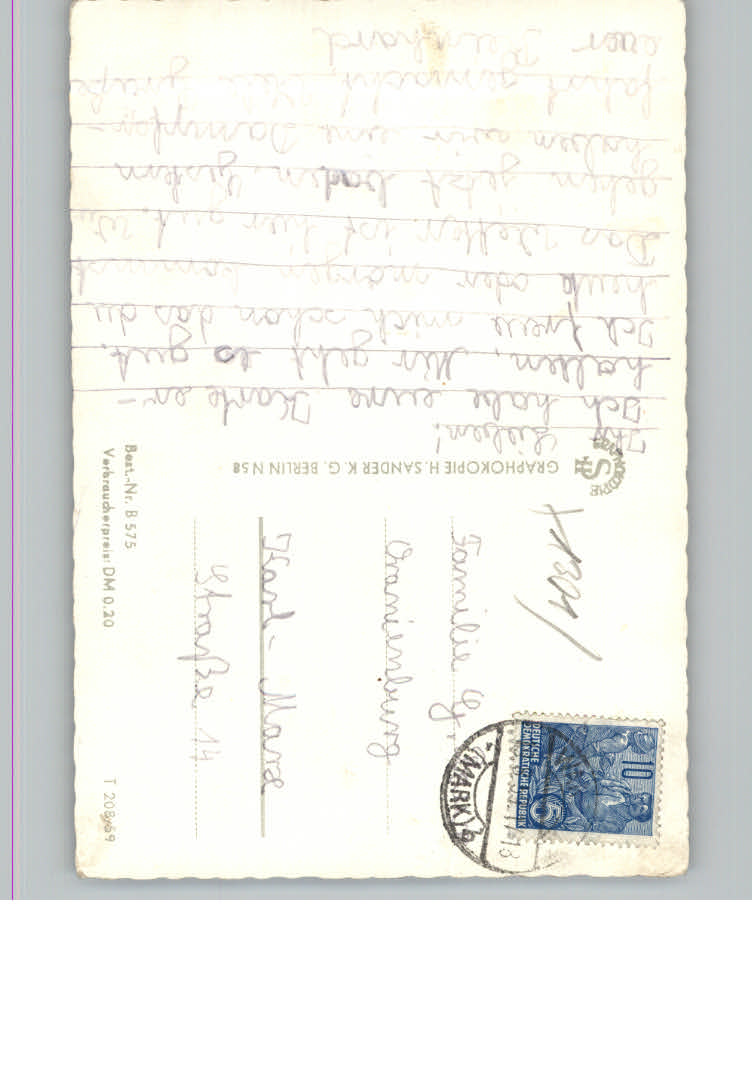 Ihr Lieben!
Ich habe eine Karte er-
halten, Mir geht es gut.
Ich freue mich schon das du
heute oder morgen kommst
Das Wetter ist hier gut. Wir
gehen jetzt baden. Gestern
haben wir eine Dampfer-
fahrt gemacht. Viele grüße
euer Reinhard
GRAPHOKOPIE H. SANDER K. G. BERLIN N 58
Familie Gf.
Oranienburg
Karl-Marx
Straße 14
Best.-Nr. B 575
Verbraucherpreis: DM 0.20
T 208/59
DEUTSCHE
DEMOKRATISCHE REPUBLIK
10
5
(MARK)